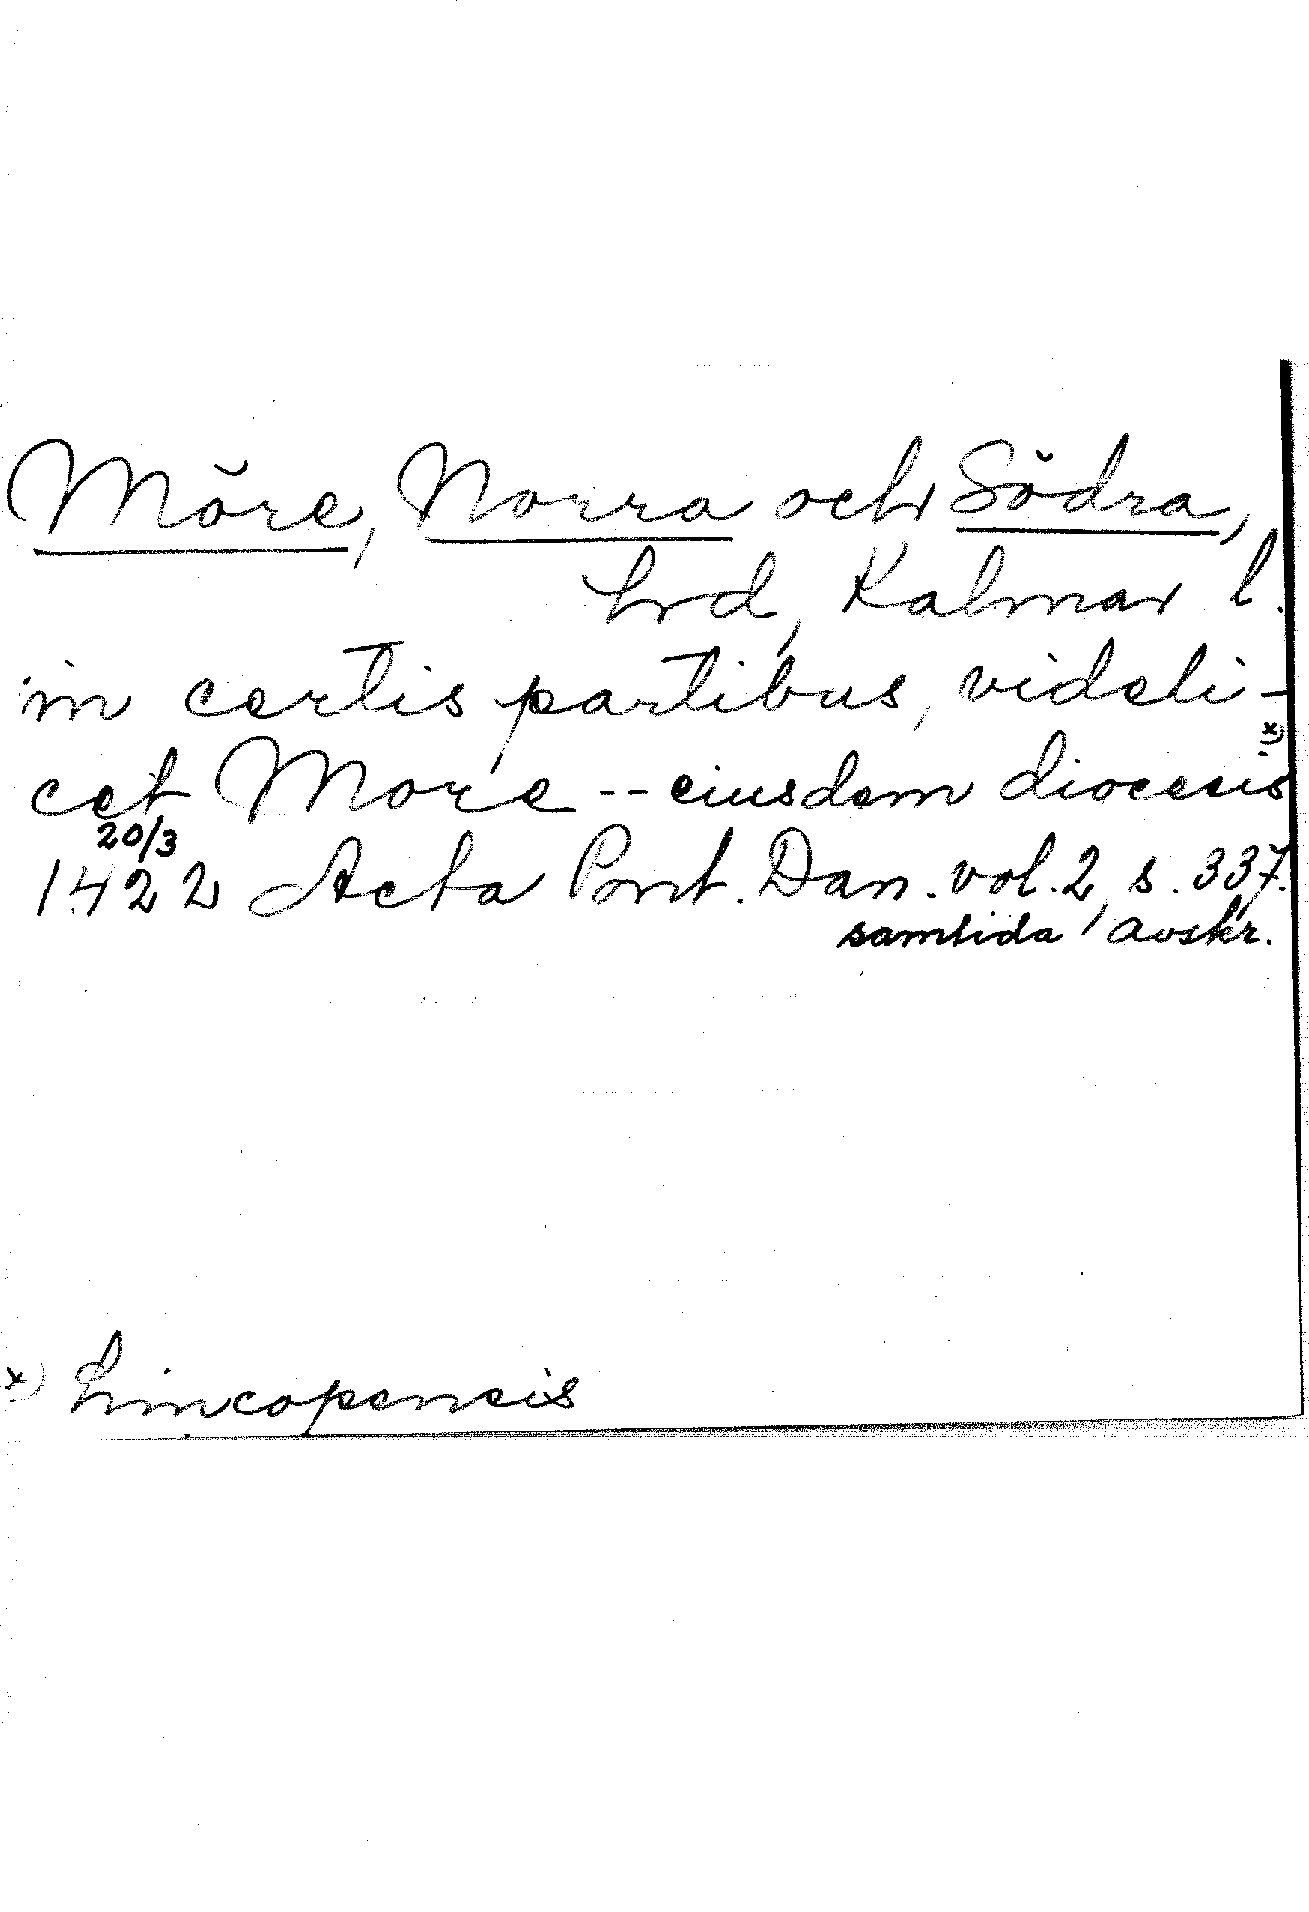 Möre, Norra och Södra,
hrd, Kalmar l.
in certis partibus, videli-
cet More -- eiusdem diocesis x)
20/3
1422 Acta Pont. Dan. vol. 2, s. 337.
samtida avskr.
x) Lincopensis